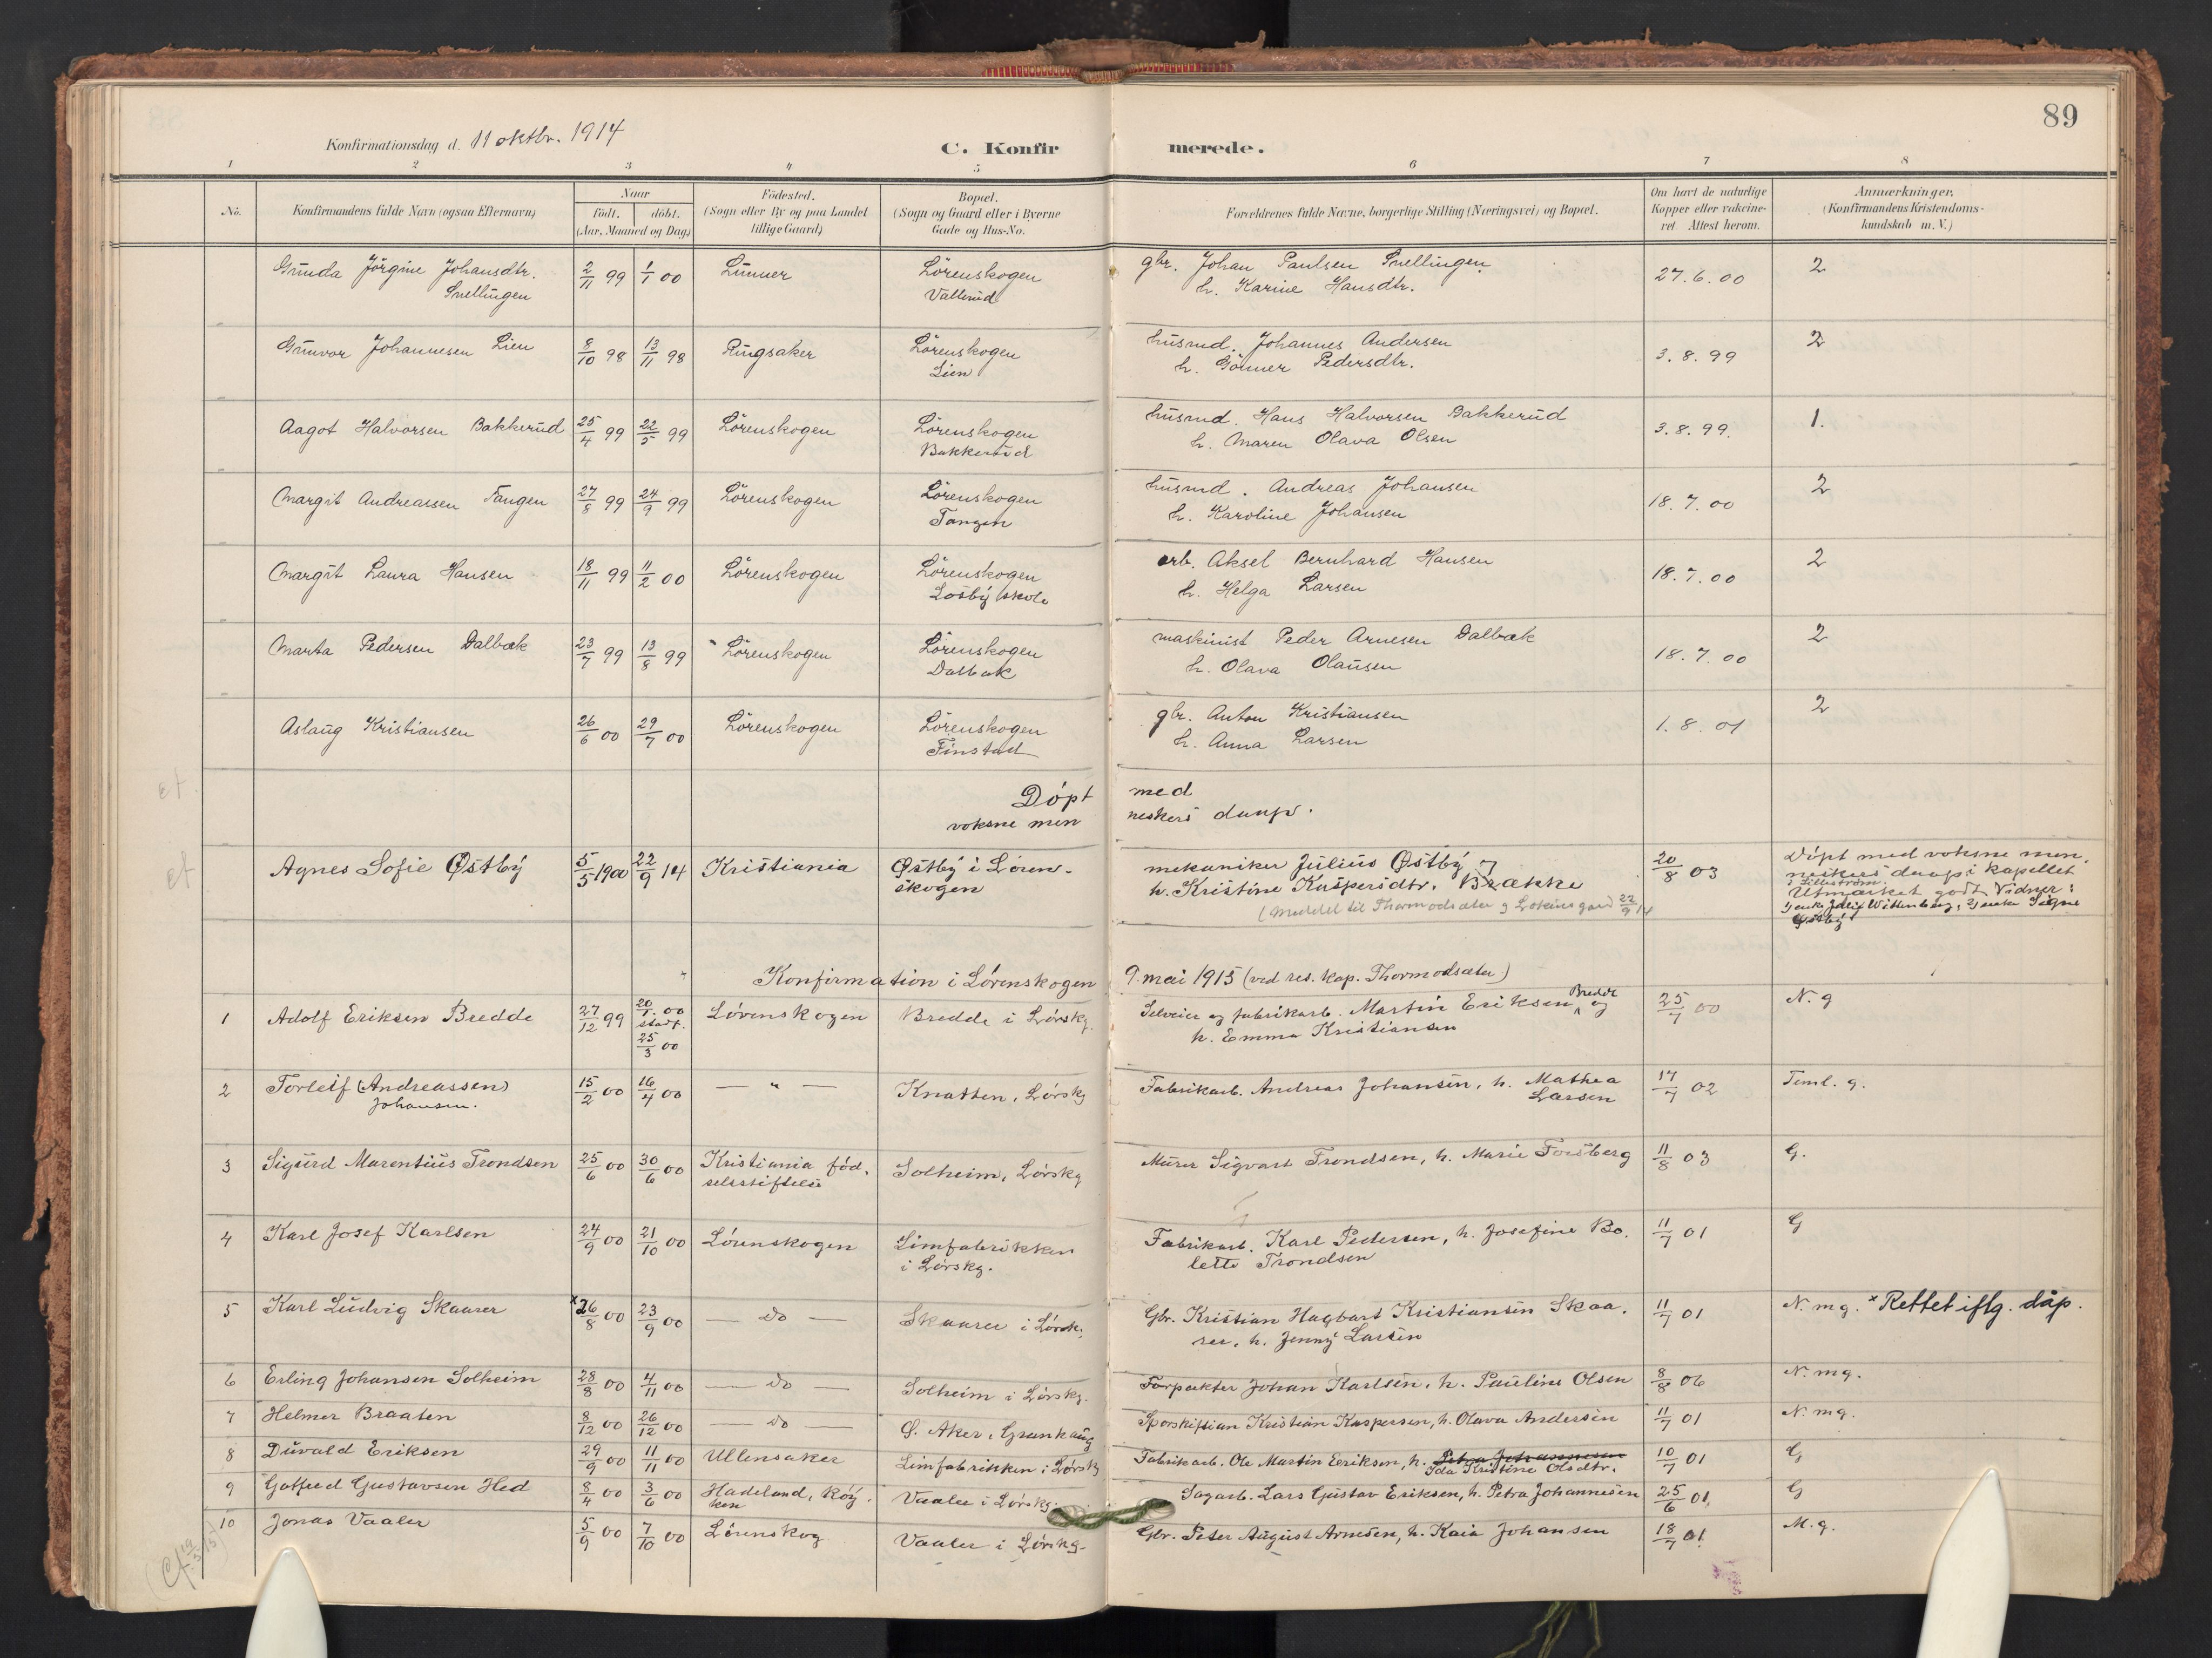 89
Konfirmationsdag d. 11 oktbr. 1914
C. Konfirmerede.
1 2 3 4 5 6 7 8
No. Konfirmandens fulde Navn (ogsaa Efternavn) Naar födt. döbt. (Aar, Maaned og Dag) Födested. (Sogn eller By og paa Landet tillige Gaard) Bopæl. (Sogn og Gaard eller i Byerne Gade og Hus-No. Forældrenes fulde Navne, borgerlige Stilling (Næringsvei) og Bopæl. Om havt de naturlige Kopper eller vakcineret Attest herom. Anmærkninger. (Konfirmandens Kristendomskundskab m.V.)
Gunda Jörgine Johansdtr. 2/11 99 1/1 00 Lunner Lörenskogen gbr. Johan Paulsen Snellingen 27.6.00 2
Snellingen Vallerud h. Karine Hansdtr.
Gunvor Johannesen Lien 8/10 98 13/11 98 Ringsaker Lörenskogen husmd. Johannes Andersen 3.8.99 2
Lien h. Gönner Pedersdtr.
Aagot Halvorsen Bakkerud 25/4 99 22/5 99 Lörenskogen Lörenskogen husmd. Hans Halvorsen Bakkerud 3.8.99. 1.
Bakkerud h. Maren Olava Olsen
Margit Andreassen Tangen 27/8 99 24/9 99 Lörenskogen Lörenskogen husmd. Andreas Johansen 18.7.00 2
Tangen h. Karoline Johansen
Margit Laura Hansen 18/11 99 11/2 00 Lörenskogen Lörenskogen arb. Aksel Bernhard Hansen 18.7.00 2
Losby skole h. Helga Larsen
Marta Pedersen Dalbæk 23/7 99 13/8 99 Lörenskogen Lörenskogen maskinist Peder Arnesen Dalbæk 18.7.00 2
Dalbæk h. Olava Olausen
Aslaug Kristiansen 26/6 00 29/7 00 Lörenskogen Lörenskogen gbr. Anton Kristiansen 1.8.01 2
Finstad h. Anna Larsen
Döpt med
voksne menneskers daap.
Agnes Sofie Østby 5/5 1900 22/9 14 Kristiania Østby i Lören- mekaniker Julius Østby 20/8 03 Döpt med voksne men-
skogen h. Kristine Kaspersdtr. Brække neskers daap i kapellet
(Meddel til Thormodsæter 22/9 14 i Lilleström.
Utmerket godt. Vidner:
Wittenberg, Signe
Østby
Konfirmation i Lörenskogen 9. mai 1915 (ved res. kap. Thormodsæter)
1 Adolf Eriksen Bredde 27/12 99 20/1. 00 Lörenskogen Bredde i Lörskg. Selveier og fabrikarb. Martin Eriksen Bredde og 25/7 00 N. g
stadf. 25/3 00 h. Emma Kristiansen
2 Torleif (Andreassen) 15/2 00 16/4 00 — " — Knatten, Lörskg Fabrikarb. Andreas Johansen, h. Mathea 17/7 02 Teml. g.
Johansen. Larsen
3 Sigurd Marentius Trondsen 25/6 00 30/6 00 Kristiania föd- Solheim, Lörskg Murer Sigvart Trondsen, h. Marie Forsberg 11/8 03 G.
selsstiftelse
4 Karl Josef Karlsen 24/9 00 21/10 00 Lörenskogen Limfabrikken Fabrikarb. Karl Pedersen, h. Josefine Bo- 11/7 01 G
i Lörskg. lette Trondsen
5 Karl Ludvig Skaarer x26/8 00 23/9 00 — do — Skaarer i Lörsk. Gbr. Kristian Hagbart Kristiansen Skaa- 11/7 01 N. mg. x Rettet iflg. dåp.
rer, h. Jenny Larsen
6 Erling Johansen Solheim 28/8 00 4/11 00 — do — Solheim i Lörskg. Forpakter Johan Karlsen, h. Pauline Olsen 8/8 06 N. mg.
7 Helmer Braaten 8/12 00 26/12 00 — do — Ø. Aker, Grankaug Kristian Kaspersen, h. Olava Andersen 11/7 01 N. mg.
8 Duvald Eriksen 29/9 00 11/11 00 Ullensaker Limfabrikken i Lörskg Fabrikarb. Ole Martin Eriksen, h. Petra Johannesen 10/7 01 G
Ida Kristine Olsdtr.
9 Gotfred Gustavsen Hed 8/4 00 3/6 00 Hadeland, Röy- Vaaler i Lörskg. Sagarb. Lars Gustav Eriksen, h. Petra Johannesen 25/6 01, G
ken
10 Jonas Vaaler 5/9 00 7/10 00 Lörenskog Vaaler i Lörskg. Gbr. Peter August Arnesen, h. Kaia Johansen 18/7 01. M. g.